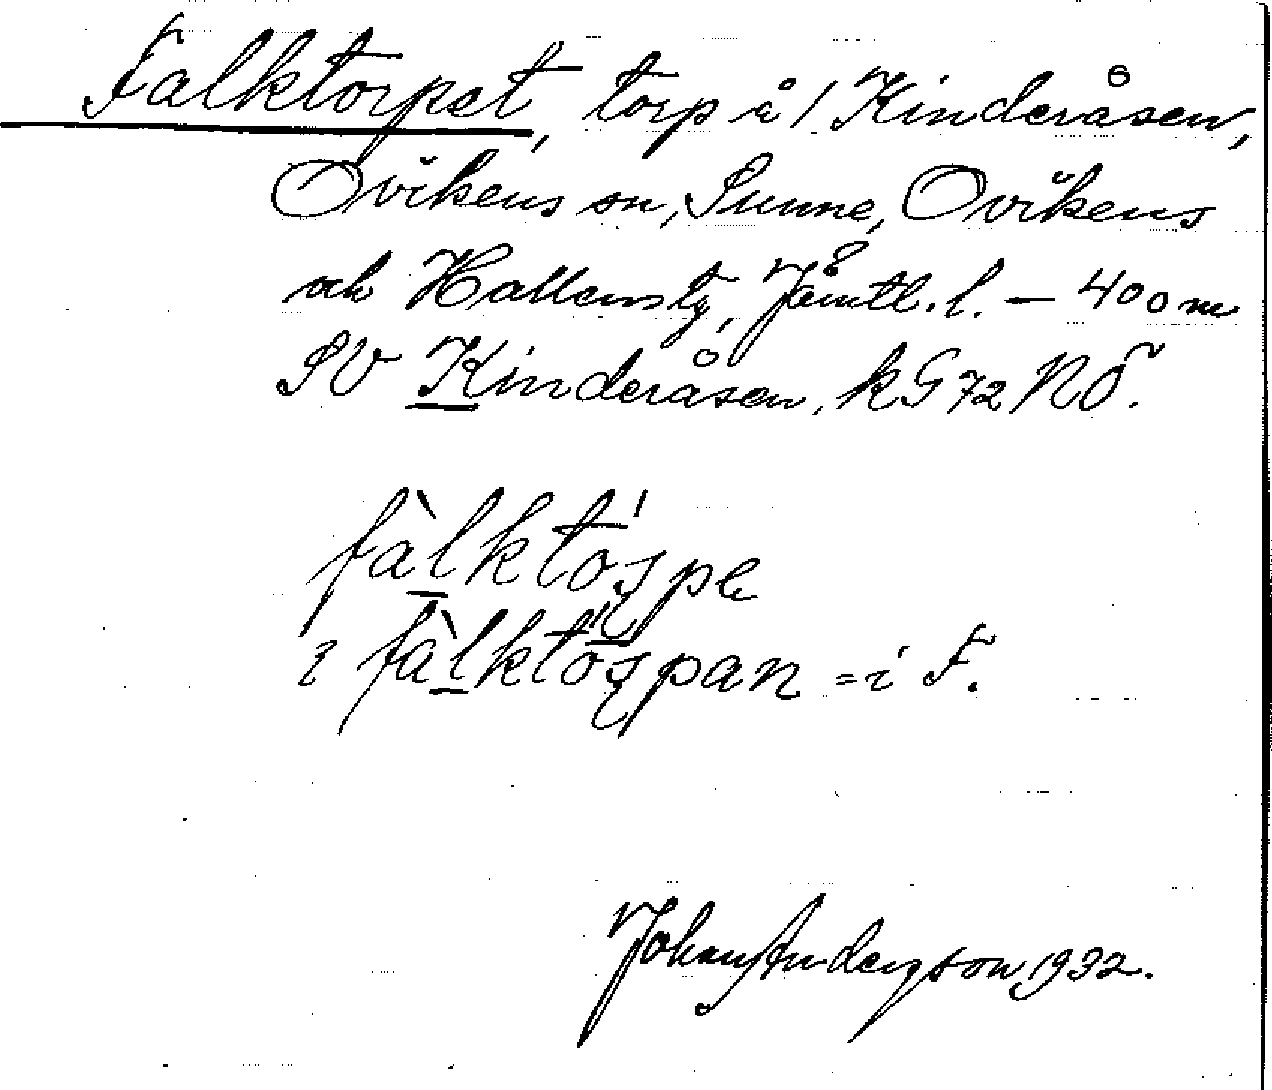 Falktorpet, torp å / Kinderåsen,
Ovikens sn, Sunne, Ovikens
och Hallens tg, Jämtl. l. — 400 m
SV Kinderåsen, kG 72 NÖ.
fàlktóspe
i fàlktóspan = i F.
Johan Anderson 1932.